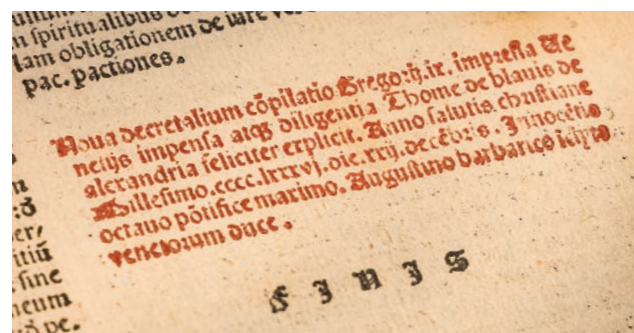 n spiritualibus
lam obligationem de iure
pac. pactiones.
Noua decretalium cõpilatio Gregorij.ix. impressa Ue
netijs impensa atqꝫ diligentia Thome de blauis de
alexandria feliciter explicit. Anno salutis christiane
Millesimo.cccc.lxxxvj.die.xxij.decẽbris. Innocẽtio
octauo põtifice maximo. Augustino barbarico
venetorum duce.
F I N I S
itiũ
sine
neum